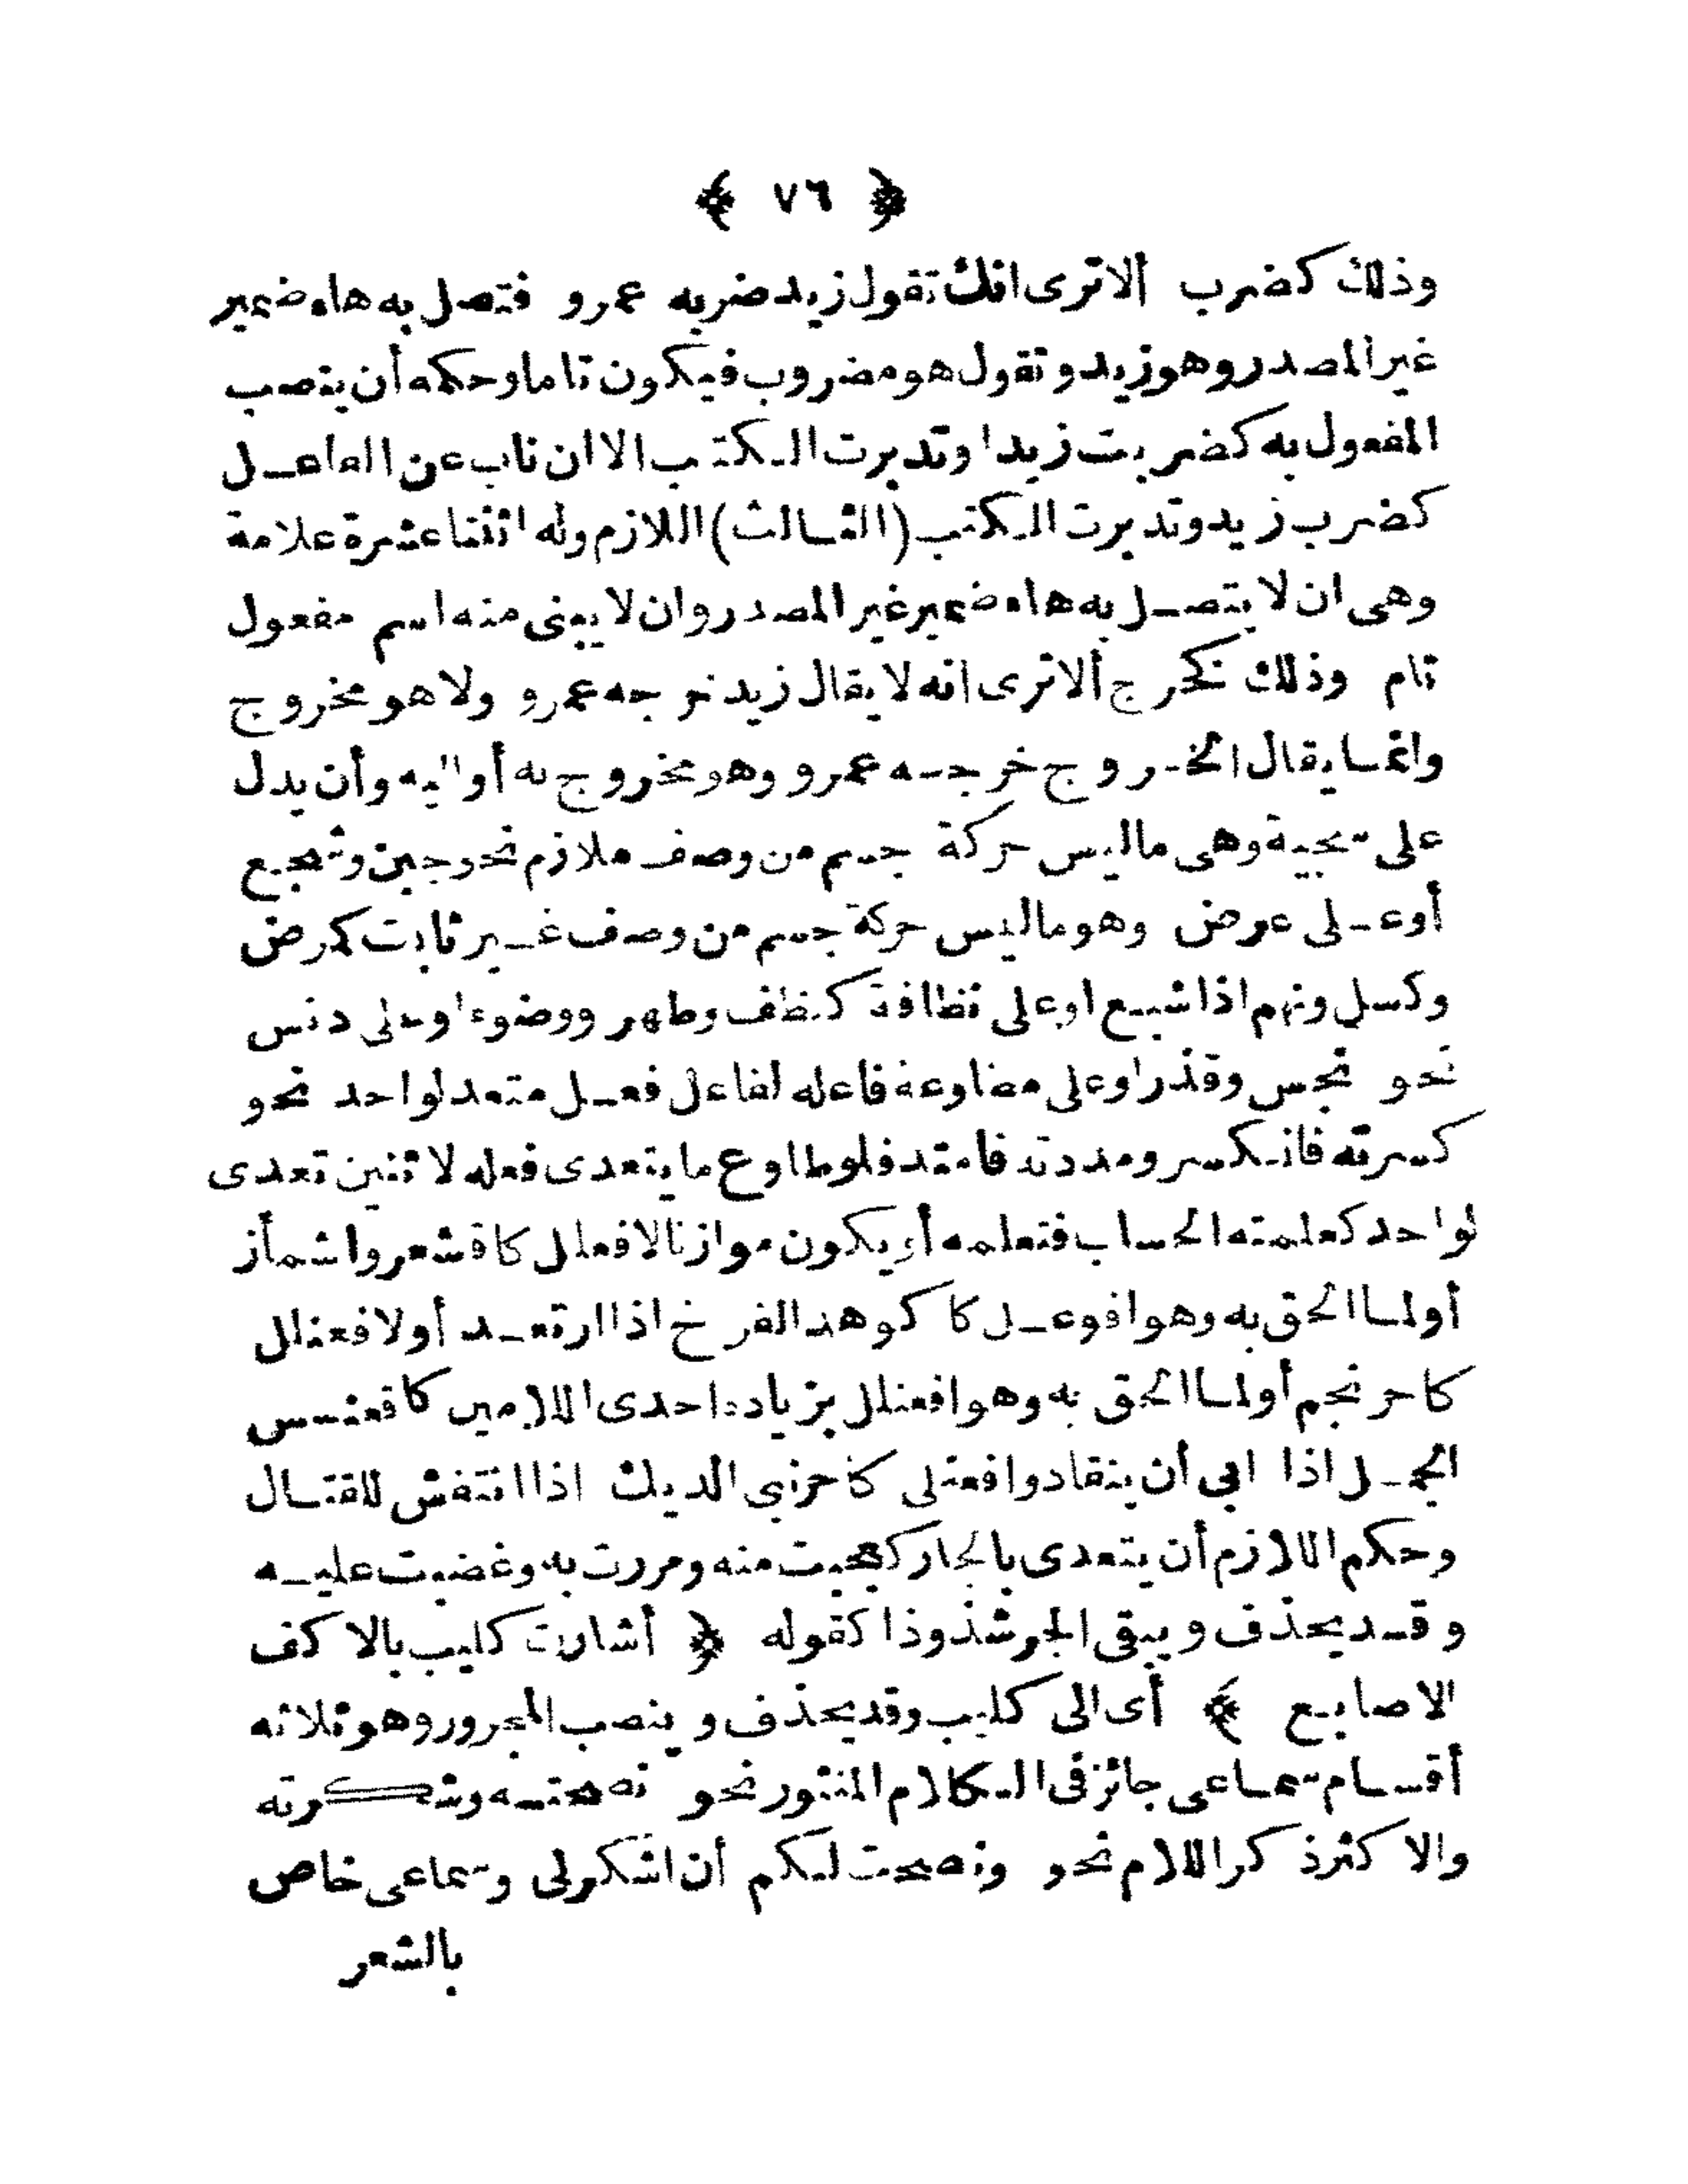 ﴿ ٧٦ ﴾
وذلك كضرب ألا ترى انك تقول زيد ضربه عمرو فتصل به هاء ضمير
غير المصدر وهو زيد وتقول هو مضروب فيكون تاما وحكمه أن ينصب
المفعول به كضربت زيدا وتدبرت الكتب الا ان ناب عن الفاعل
كضرب زيد وتدبرت الكتب (الثالث) اللازم وله اثنتا عشرة علامة
وهى ان لا يتصل به هاء ضمير غير المصدر وان لا يبنى منه اسم مفعول
تام وذلك كخرج ألا ترى انه لا يقال زيد خرجه عمرو ولا هو مخروج
وانما يقال الخروج خرجه عمرو وهو مخروج به أو اليه وأن يدل
على سجية وهى ما ليس حركة جسم من وصف ملازم نحو جبن وشجع
أو على عرض وهو ما ليس حركة جسم من وصف غير ثابت كمرض
وكسل ونهم اذا شبع او على نظافة كنظف وطهر ووضوء او على دنس
نحو نجس وقذر او على مطاوعة فاعله لفاعل فعل متعد لواحد نحو
كسرته فانكسر ومددته فامتد فلو طاوع ما يتعدى فعله لاثنين تعدى
لواحد كعلمته الحساب فتعلمه أو يكون موازنا لافعلل كاقشعر واشمأز
أو لما الحق به وهو افوعل كاكوهد الفرخ اذا ارتعد أو لافعنلل
كاحرنجم أو لما الحق به وهو افعنلل بزيادة احدى اللامين كاقعنسس
الجمل اذا ابى أن ينقاد وافعنلى كاحرنبى الديك اذا انتفش للقتال
وحكم اللازم أن يتعدى بالجار كعجبت منه ومررت به وغضبت عليه
وقد يحذف ويبقى الجر شذوذا كقوله ﴿ أشارت كليب بالاكف
الاصابع ﴾ أى الى كليب وقد يحذف وينصب المجرور وهو ثلاثه
أقسام سماعى جائز فى الكلام المنثور نحو نصحته وشكرته
والاكثر ذكر اللام نحو ونصحت لكم أن اشكر لى وسماعى خاص
بالشعر